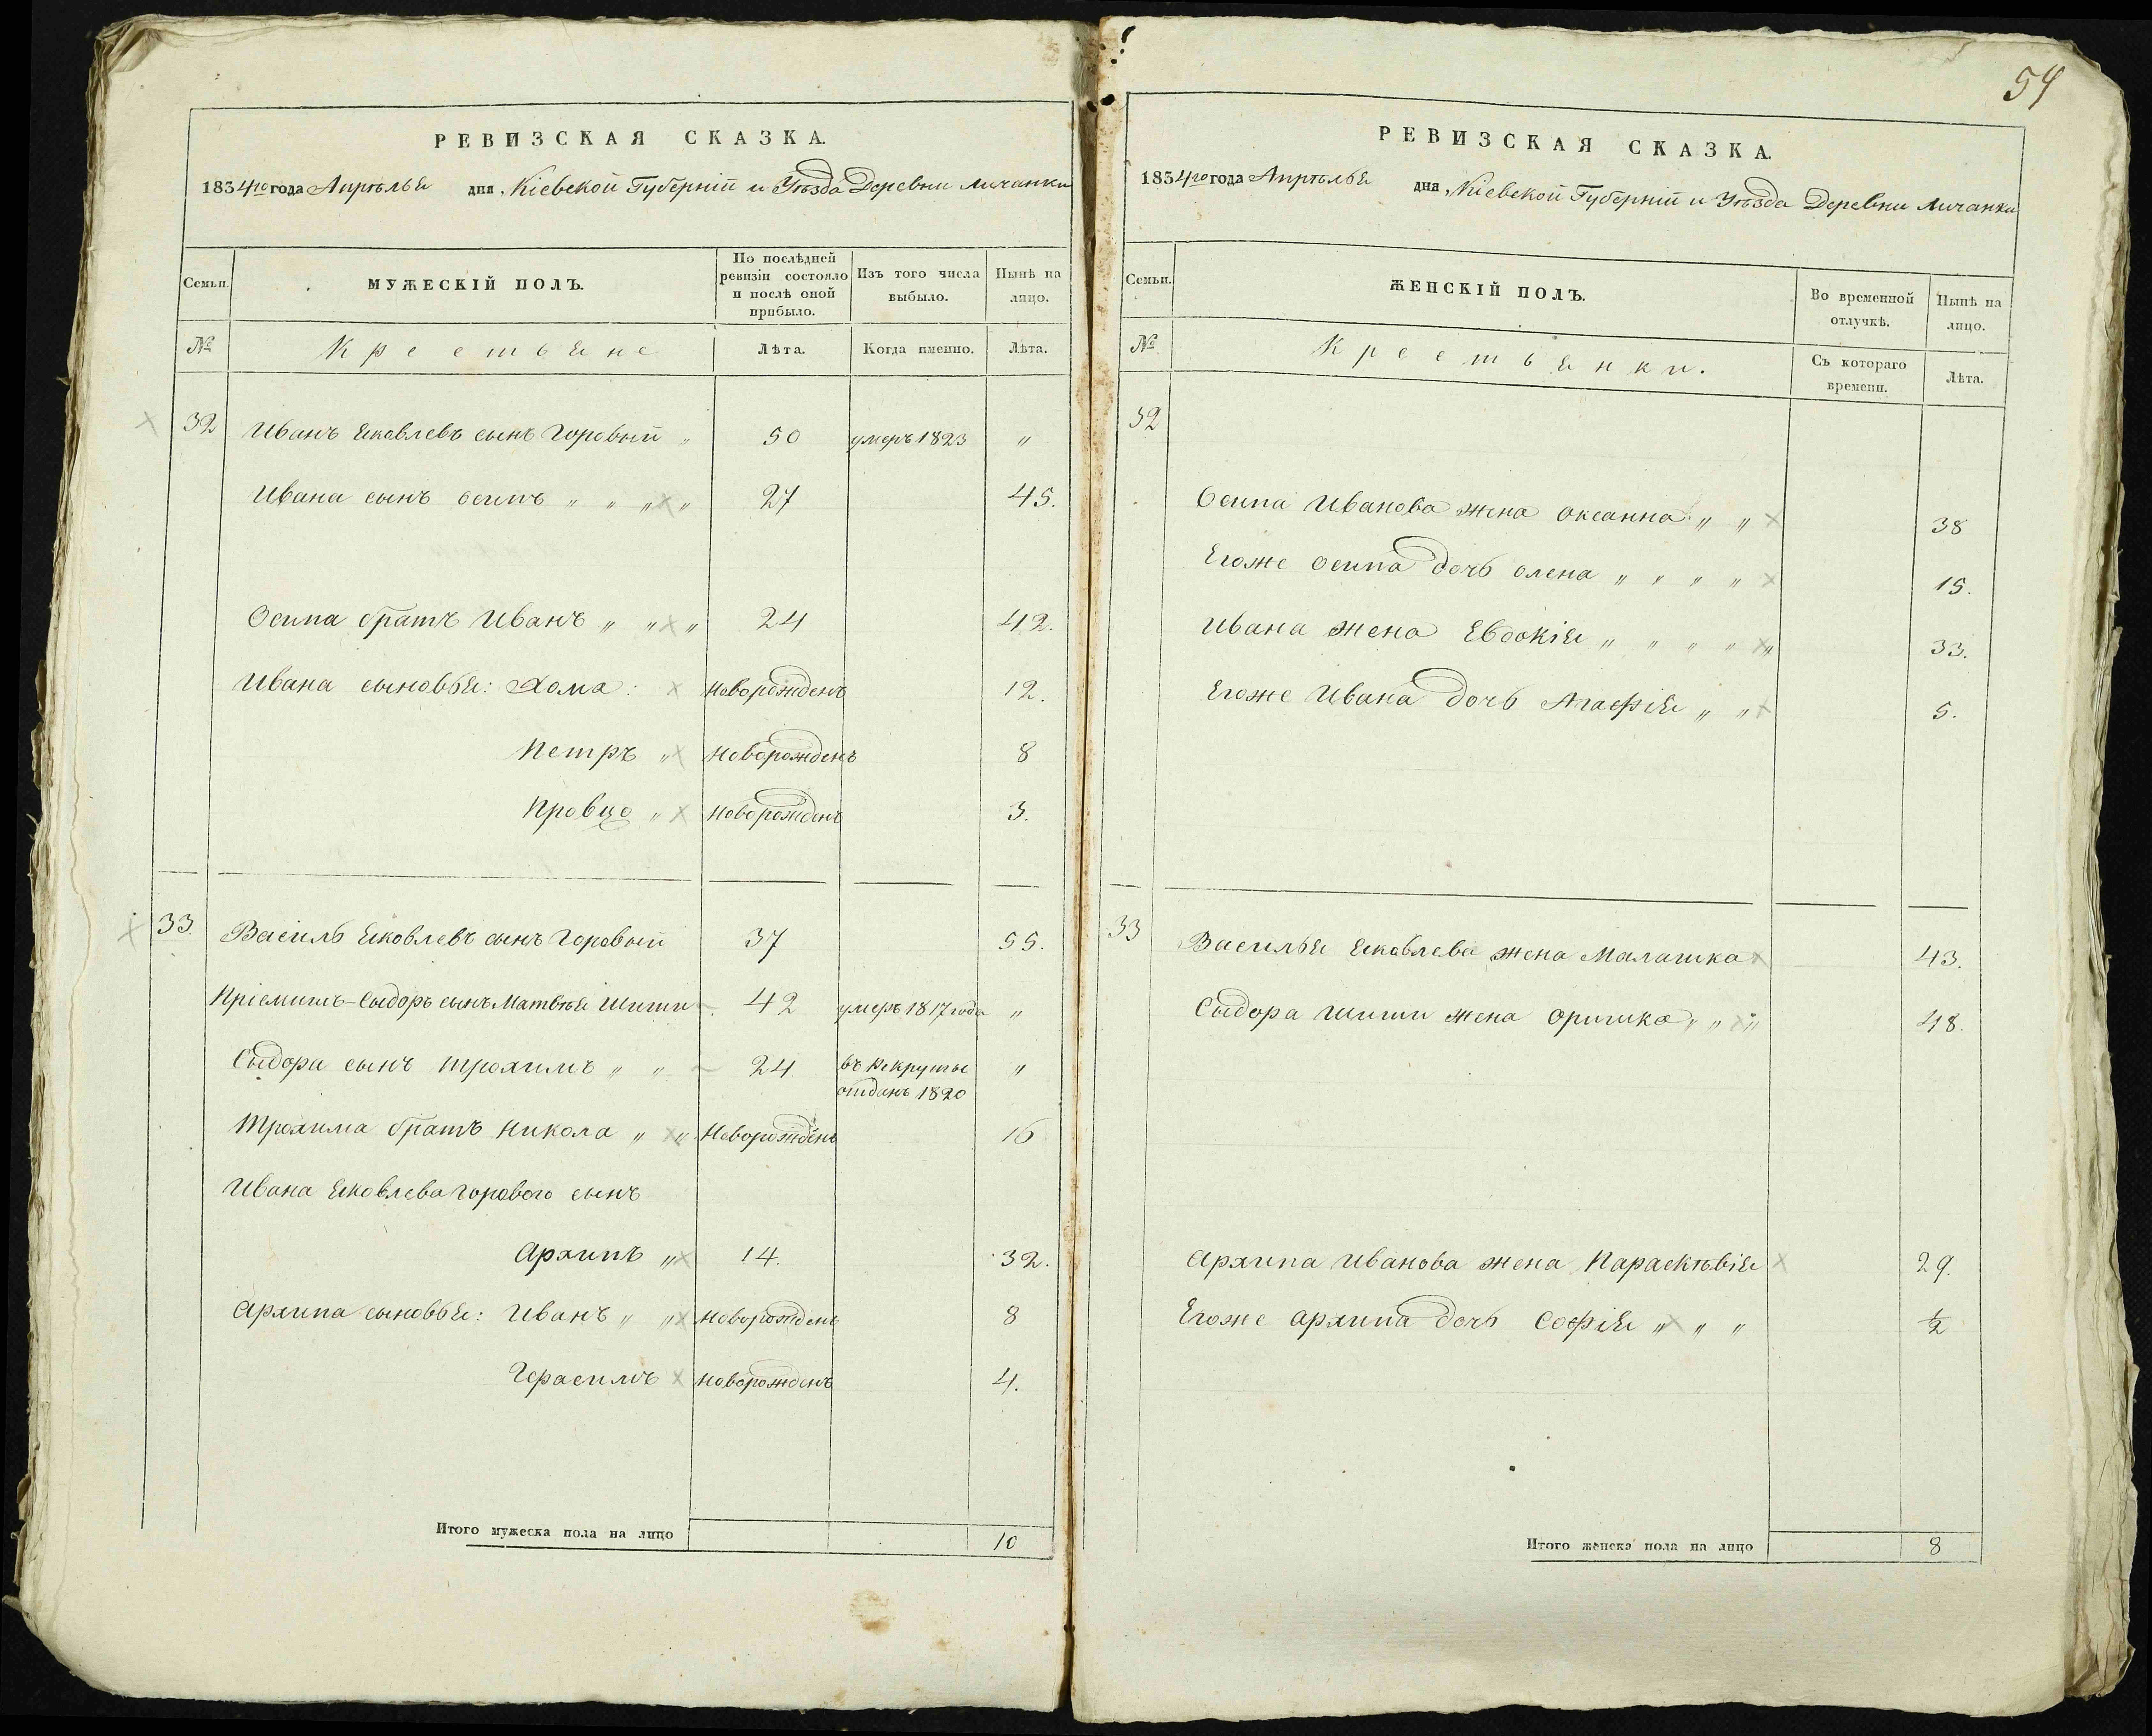 54
РЕВИЗСКАЯ СКАЗКА.
1834го года Апрѣля дня, Кіевской Губерніи и Уѣзда Деревни Личанки
Семьи.
МУЖЕСКІЙ ПОЛЪ.
По послѣдней ревизіи состояло и послѣ оной прибыло.
Изъ того числа выбыло.
Нынѣ на лицо.
№
Крестьяне
Лѣта.
Когда именно.
Лѣта.
32 Иванъ Яковлевъ сынъ Горовый „ 50 умеръ 1823 „
Ивана сынъ Осипъ „ „ „ „ 27 45.
Осипа братъ Иванъ „ „ „ 24 42.
Ивана сыновья: Хома: Новорожденъ 12.
Петръ „ Новорожденъ 8
Новорожденъ 3.
33. Василь Яковлевъ сынъ Горовый 37 55.
Пріемишъ – Сыдоръ сынъ Матвѣя Шиши 42 умеръ 1817 года „
Сыдора сынъ Трохимъ „ „ 24. въ Рекруты „
отданъ 1820
Трохима братъ Никола „ „ Новорожденъ 16
Ивана Яковлева Горового сынъ
Архипъ „ 14. 32.
Архипа сыновья: Иванъ „ „ Новорожденъ 8
Герасимъ Новорожденъ 4.
Итого мужеска пола на лицо 10
РЕВИЗСКАЯ СКАЗКА.
1834го года Апрѣля дня, Кіевской Губерніи и Уѣзда Деревни Личанки
Семьи.
ЖЕНСКІЙ ПОЛЪ.
Во временной отлучкѣ.
Нынѣ на лицо.
№
Крестьянки.
Съ котораго времени.
Лѣта.
32
Осипа Иванова жена Оксанна „ „ 38
Егоже Осипа дочь Олена „ „ „ „ 15.
Ивана жена Евдокія „ „ „ „ „ 33.
Егоже Ивана дочь Агафія „ „ 5.
33 Василья Яковлева жена Малашка 43.
Сыдора Шиши жена Оришка „ „ „ 48.
Архипа Иванова жена Параскѣвія 29.
Егоже Архипа дочь Софія „ „ „ ½
Итого женска пола на лицо 8